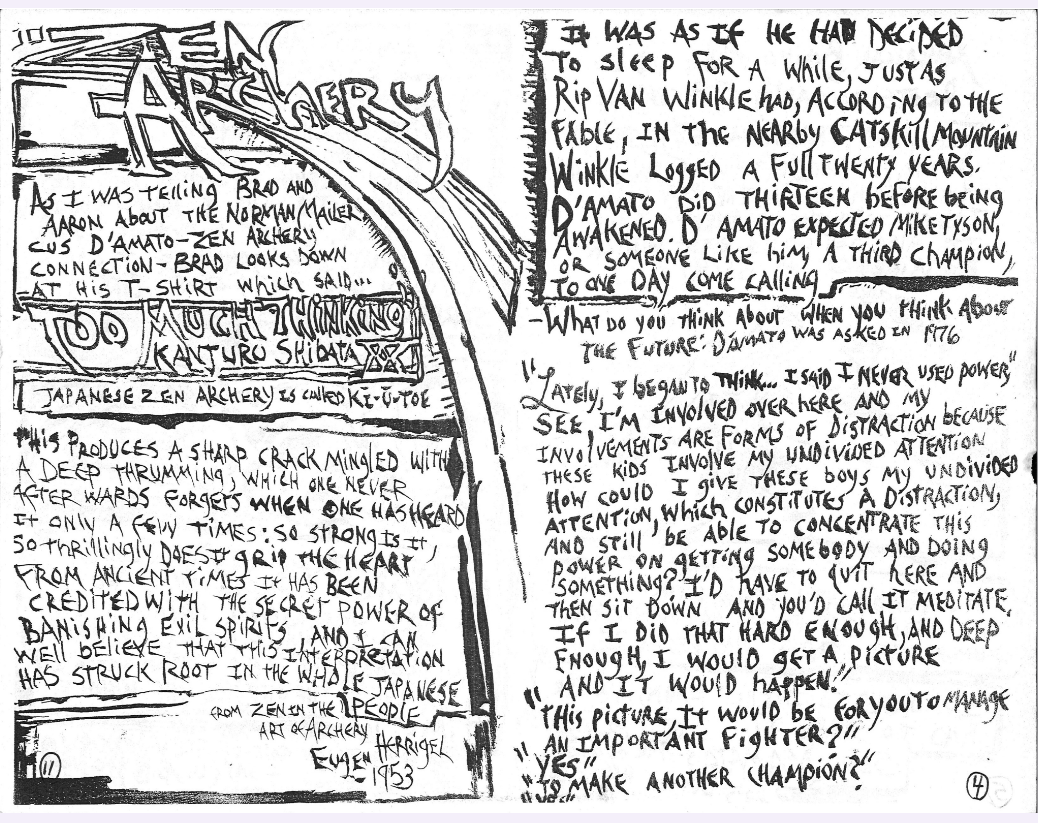 ZEN
ARCHERY
AS I WAS TELLING BRAD AND
AARON ABOUT THE NORMAN MAILER,
CUS D'AMATO-ZEN ARCHERY,
CONNECTION- BRAD LOOKS DOWN
AT HIS T-SHIRT WHICH SAID...
TOO MUCH THINKING
KANJURO SHIBATA XX
JAPANESE ZEN ARCHERY IS CALLED KI-U-TOE
THIS PRODUCES A SHARP CRACK MINGLED WITH
A DEEP THRUMMING, WHICH ONE NEVER
AFTER WARDS FORGETS WHEN ONE HAS HEARD
IT ONLY A FEW TIMES: SO STRONG IS IT,
SO THRILLINGLY DOES IT GRIP THE HEART
FROM ANCIENT TIMES IT HAS BEEN
CREDITED WITH THE SECRET POWER OF
BANISHING EXIL SPIRITS, AND I CAN
WELL BELIEVE THAT THIS INTERPRETATION
HAS STRUCK ROOT IN THE WHOLE JAPANESE
PEOPLE
FROM ZEN IN THE
ART OF ARCHERY
EUGEN HERRIGEL
1953
11
IT WAS AS IF HE HAD DECIDED
TO SLEEP FOR A WHILE, JUST AS
RIP VAN WINKLE HAD, ACCORDING TO THE
FABLE, IN THE NEARBY CATSKILL MOUNTAIN
WINKLE LOGGED A FULL TWENTY YEARS.
D'AMATO DID THIRTEEN BEFORE BEING
AWAKENED. D'AMATO EXPECTED MIKE TYSON,
OR SOMEONE LIKE HIM, A THIRD CHAMPION,
TO ONE DAY COME CALLING
-WHAT DO YOU THINK ABOUT WHEN YOU THINK ABOUT
THE FUTURE: D'AMATO WAS ASKED IN 1976
"LATELY, I BEGAN TO THINK... I SAID I NEVER USED POWER,"
SEE, I'M INVOLVED OVER HERE AND MY
INVOLVEMENTS ARE FORMS OF DISTRACTION BECAUSE
THESE KIDS INVOLVE MY UNDIVIDED ATTENTION
HOW COULD I GIVE THESE BOYS MY UNDIVIDED
ATTENTION, WHICH CONSTITUTES A DISTRACTION,
AND STILL BE ABLE TO CONCENTRATE THIS
POWER ON GETTING SOMEBODY AND DOING
SOMETHING? I'D HAVE TO QUIT HERE AND
THEN SIT DOWN AND YOU'D CALL IT MEDITATE.
IF I DID THAT HARD ENOUGH, AND DEEP
ENOUGH, I WOULD GET A PICTURE
AND IT WOULD HAPPEN."
"THIS PICTURE, IT WOULD BE FOR YOU TO MANAGE
AN IMPORTANT FIGHTER?"
"YES"
"TO MAKE ANOTHER CHAMPION?"
"YES"
4